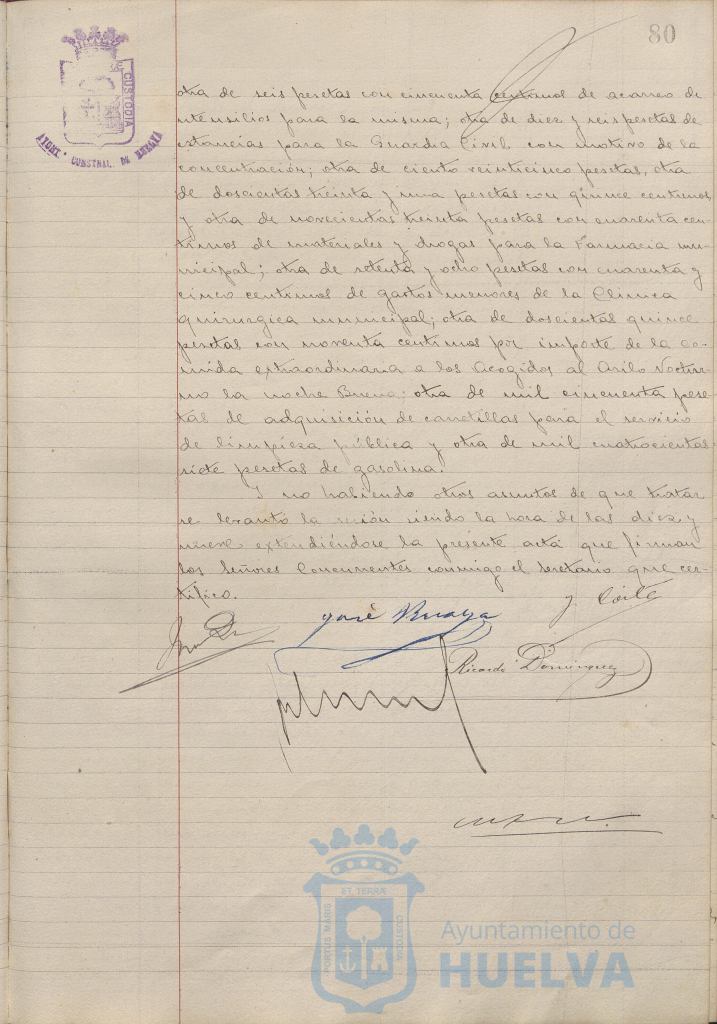 80
CUSTODIA
AYUNT. CONSTNAL. DE HUELVA
otra de seis pesetas con cincuenta centimos de acarreo de
utensilios para la misma; otra de diez y seis pesetas de
estancias para la Guardia Civil con motivo de la
concentración; otra de ciento veinticinco pesetas, otra
de doscientas treinta y una pesetas con quince centimos
y otra de novecientas treinta pesetas con cuarenta cen-
timos de materiales y drogas para la Farmacia mu-
nicipal; otra de setenta y ocho pesetas con cuarenta y
cinco centimos de gastos menores de la Clinica
quirurgica municipal; otra de doscientas quince
pesetas con noventa centimos por importe de la co-
mida extraordinaria a los Acogidos al Asilo Noctur-
no la noche Buena; otra de mil cincuenta pese-
tas de adquisición de carretillas para el servicio
de limpieza pública y otra de mil cuatrocientas
siete pesetas de gasolina.
Y no habiendo otros asuntos de que tratar
se levantó la sesión siendo la hora de las diez y
nueve extendiéndose la presente acta que firman
los Señores Concurrentes conmigo el Secretario que cer-
tifico.
José
Ricardo Dominguez
ET TERRÆ
PORTUS MARIS
CUSTODIA
Ayuntamiento de
HUELVA